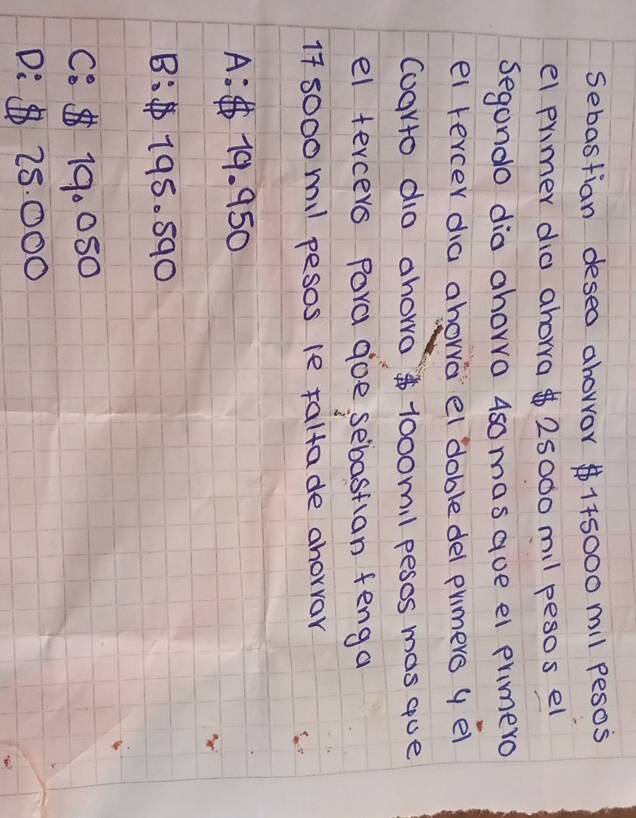 Sebastian desea ahorrar $175000 mil pesos
el primer dia ahorra $25000 mil pesos el
segundo dia ahorra 450 mas que el primero
el tercer dia ahorra el doble del primero y el
cuarto dia ahorra $1000 mil pesos mas que
el tercero para que sebastian tenga
175000 mil pesos le falta de ahorrar
A: $ 19.950
B: $ 195.590
C: $ 19.050
D: $ 25.000